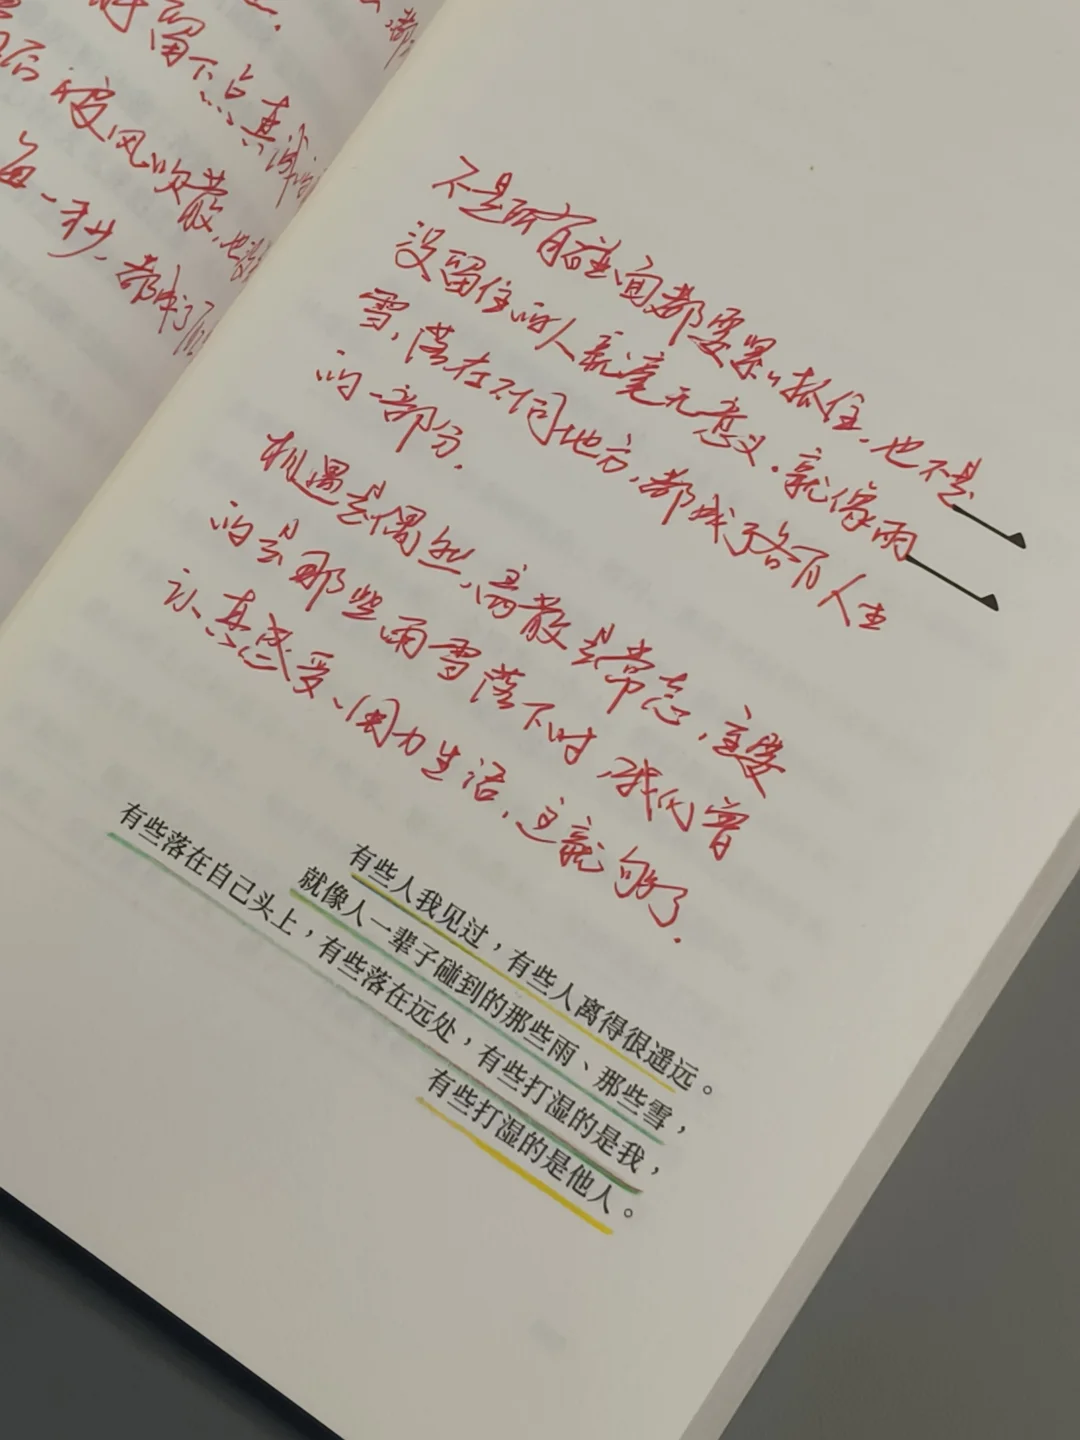 留下点真诚
后被风吹散,也
每一秒,都成了
不是所有碰面都要紧紧抓住,也不是
没留住的人就毫无意义。就像雨
雪,落在不同地方,都成了各自人生
的一部分。
相遇是偶然,离散是常态,重要
的是那些雨雪落下时,我们曾
认真感受、用力生活,这就够了.
有些人我见过,有些人离得很遥远。
就像人一辈子碰到的那些雨、那些雪,
有些落在自己头上,有些落在远处,有些打湿的是我,
有些打湿的是他人。